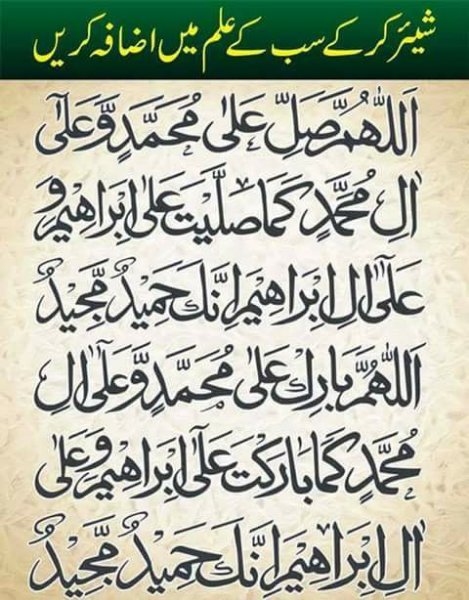 شیئر کر کے سب کے علم میں اضافہ کریں
اَللّٰهُمَّ صَلِّ عَلٰی مُحَمَّدٍ وَّعَلٰٓی
اٰلِ مُحَمَّدٍ كَمَا صَلَّیْتَ عَلٰٓی اِبْرَاهِیْمَ وَ
عَلٰٓی اٰلِ اِبْرَاهِیْمَ اِنَّكَ حَمِیْدٌ مَّجِیْدٌ
اَللّٰهُمَّ بَارِكْ عَلٰی مُحَمَّدٍ وَّعَلٰٓی اٰلِ
مُحَمَّدٍ كَمَا بَارَكْتَ عَلٰٓی اِبْرَاهِیْمَ وَعَلٰٓی
اٰلِ اِبْرَاهِیْمَ اِنَّكَ حَمِیْدٌ مَّجِیْدٌ